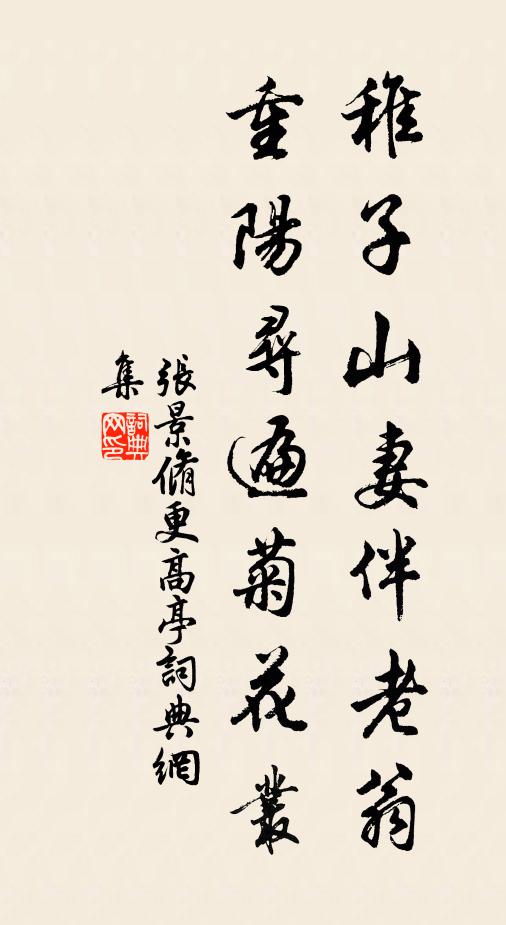 稚子山妻伴老翁
重陽尋遍菊花叢
張景脩更高亭詞典網
集
詞典
网印